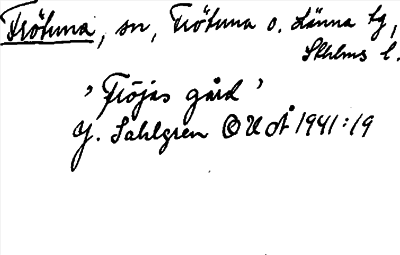 Frötuna, sn, Frötuna o. Länna tg,
Sthlms l.
'Fröjas gård'
J. Sahlgren OUÅ 1941:19